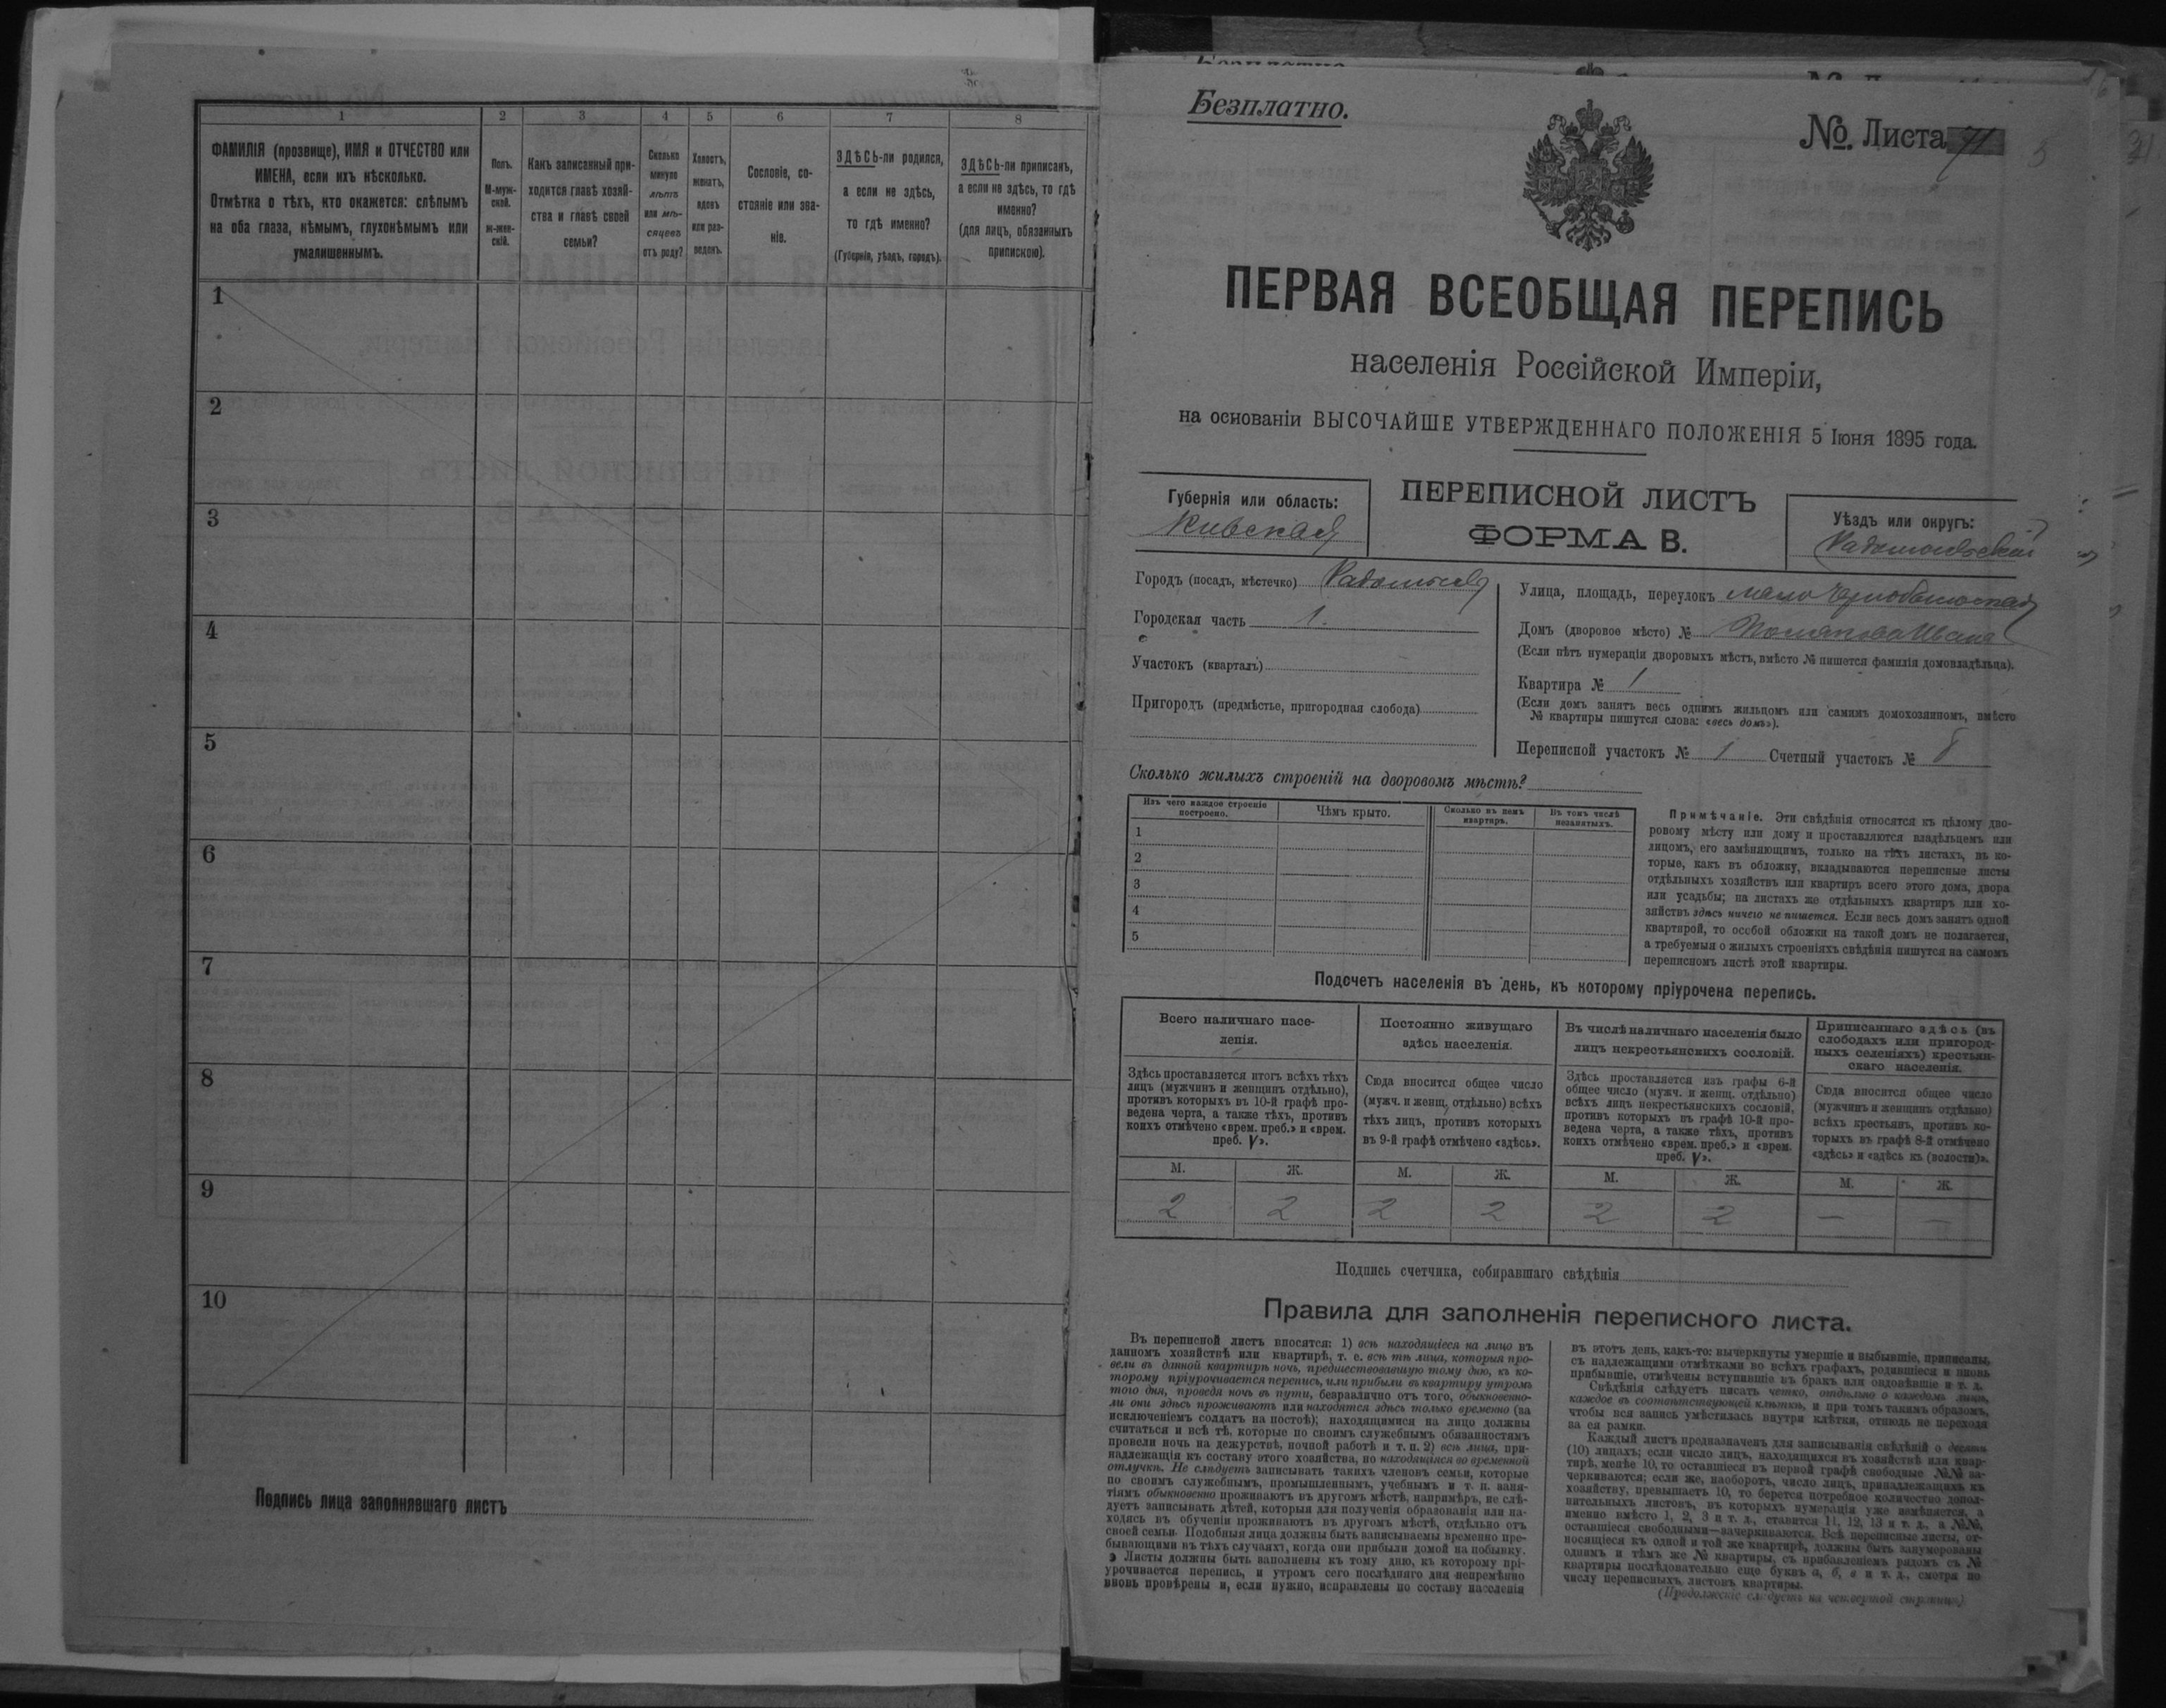 1
2
3
4
5
6
7
8
ФАМИЛІЯ (прозвище), ИМЯ и ОТЧЕСТВО или
ИМЕНА, если ихъ нѣсколько.
Отмѣтка о тѣхъ, кто окажется: слѣпымъ
на оба глаза, нѣмымъ, глухонѣмымъ или
умалишеннымъ.
Полъ.
М-муж-
ской.
ж-жен-
скій.
Какъ записанный при-
ходится главѣ хозяй-
ства и главѣ своей
семьи?
Сколько
минуло
лѣтъ
или мѣ-
сяцевъ
отъ роду?
Холостъ,
женатъ,
вдовъ
или раз-
веденъ.
Сословіе, со-
стояніе или зва-
ніе.
ЗДѢСЬ-ли родился,
а если не здѣсь,
то гдѣ именно?
(Губернія, уѣздъ, городъ).
ЗДѢСЬ-ли приписанъ,
а если не здѣсь, то гдѣ
именно?
(для лицъ, обязанныхъ
припискою).
1
2
3
4
5
6
7
8
9
10
Подпись лица заполнявшаго листъ
Безплатно.
№ Листа 71
ПЕРВАЯ ВСЕОБЩАЯ ПЕРЕПИСЬ
населенія Россійской Имперіи,
на основаніи ВЫСОЧАЙШЕ УТВЕРЖДЕННАГО ПОЛОЖЕНІЯ 5 Іюня 1895 года.
Губернія или область:
Кіевская
ПЕРЕПИСНОЙ ЛИСТЪ
ФОРМА В.
Уѣздъ или округъ:
Радомысльскій
Городъ (посадъ, мѣстечко) Радомысль
Городская часть 1.
Участокъ (кварталъ)
Пригородъ (предмѣстье, пригородная слобода)
Улица, площадь, переулокъ
Домъ (дворовое мѣсто) №
(Если нѣтъ нумераціи дворовыхъ мѣстъ, вмѣсто № пишется фамилія домовладѣльца).
Квартира № 1
(Если домъ занятъ весь однимъ жильцомъ или самимъ домохозяиномъ, вмѣсто
№ квартиры пишутся слова: «весь домъ»).
Переписной участокъ № 1 Счетный участокъ № 8
Сколько жилыхъ строеній на дворовомъ мѣстѣ?
Изъ чего каждое строеніе
построено.
Чѣмъ крыто.
Сколько въ немъ
квартиръ.
Въ томъ числѣ
незанятыхъ.
1
2
3
4
5
Примѣчаніе. Эти свѣдѣнія относятся къ цѣлому дво-
ровому мѣсту или дому и проставляются владѣльцемъ или
лицомъ, его замѣняющимъ, только на тѣхъ листахъ, въ ко-
торые, какъ въ обложку, вкладываются переписные листы
отдѣльныхъ хозяйствъ или квартиръ всего этого дома, двора
или усадьбы; на листахъ же отдѣльныхъ квартиръ или хо-
зяйствъ здѣсь ничего не пишется. Если весь домъ занятъ одной
квартирой, то особой обложки на такой домъ не полагается,
а требуемыя о жилыхъ строеніяхъ свѣдѣнія пишутся на самомъ
переписномъ листѣ этой квартиры.
Подсчетъ населенія въ день, къ которому пріурочена перепись.
Всего наличнаго насе-
ленія.
Здѣсь проставляется итогъ всѣхъ тѣхъ
лицъ (мужчинъ и женщинъ отдѣльно),
противъ которыхъ въ 10-й графѣ про-
ведена черта, а также тѣхъ, противъ
коихъ отмѣчено «врем. преб.» и «врем.
преб. V».
Постоянно живущаго
здѣсь населенія.
Сюда вносится общее число
(мужч. и женщ. отдѣльно) всѣхъ
тѣхъ лицъ, противъ которыхъ
въ 9-й графѣ отмѣчено «здѣсь».
Въ числѣ наличнаго населенія было
лицъ некрестьянскихъ сословій.
Здѣсь проставляется изъ графы 6-й
общее число (мужч. и женщ. отдѣльно)
всѣхъ лицъ некрестьянскихъ сословій,
противъ которыхъ въ графѣ 10-й про-
ведена черта, а также тѣхъ, противъ
коихъ отмѣчено «врем. преб.» и «врем.
преб. V».
Приписаннаго здѣсь (въ
слободахъ или пригород-
ныхъ селеніяхъ) крестьян-
скаго населенія.
Сюда вносится общее число
(мужчинъ и женщинъ отдѣльно)
всѣхъ крестьянъ, противъ ко-
торыхъ въ графѣ 8-й отмѣчено
«здѣсь» и «здѣсь къ (волости)».
М. Ж. М. Ж. М. Ж. М. Ж.
2 2 2 2 2 2 — —
Подпись счетчика, собиравшаго свѣдѣнія
Правила для заполненія переписного листа.
Въ переписной листъ вносятся: 1) всѣ находящіеся на лицо въ
данномъ хозяйствѣ или квартирѣ, т. е. всѣ тѣ лица, которыя про-
вели въ данной квартирѣ ночь, предшествовавшую тому дню, къ ко-
торому пріурочивается перепись, или прибыли въ квартиру утромъ
того дня, проведя ночь въ пути, безразлично отъ того, обыкновенно-
ли они здѣсь проживаютъ или находятся здѣсь только временно (за
исключеніемъ солдатъ на постоѣ); находящимися на лицо должны
считаться и всѣ тѣ, которые по своимъ служебнымъ обязанностямъ
провели ночь на дежурствѣ, ночной работѣ и т. п. 2) всѣ лица, при-
надлежащія къ составу этого хозяйства, но находящіяся во временной
отлучкѣ. Не слѣдуетъ записывать такихъ членовъ семьи, которые
по своимъ служебнымъ, промышленнымъ, учебнымъ и т. п. заня-
тіямъ обыкновенно проживаютъ въ другомъ мѣстѣ, напримѣръ, не слѣ-
дуетъ записывать дѣтей, которыя для полученія образованія или на-
ходясь въ обученіи проживаютъ въ другомъ мѣстѣ, отдѣльно отъ
своей семьи. Подобныя лица должны быть записываемы временно пре-
бывающими въ тѣхъ случаяхъ, когда они прибыли домой на побывку.
Листы должны быть наполнены къ тому дню, къ которому прі-
урочивается перепись, и утромъ сего послѣдняго дня непремѣнно
вновь провѣрены и, если нужно, исправлены по составу населенія
въ этотъ день, какъ-то: вычеркнуты умершіе и выбывшіе, приписаны,
съ надлежащими отмѣтками во всѣхъ графахъ, родившіеся и вновь
прибывшіе, отмѣчены вступившіе въ бракъ или овдовѣвшіе и т. д.
Свѣдѣнія слѣдуетъ писать четко, отдѣльно о каждомъ лицѣ,
каждое въ соотвѣтствующей клѣткѣ, и при томъ такимъ образомъ,
чтобы вся запись умѣстилась внутри клѣтки, отнюдь не переходя
за ея рамки.
Каждый листъ предназначенъ для записыванія свѣдѣній о десяти
(10) лицахъ; если число лицъ, находящихся въ хозяйствѣ или квар-
тирѣ, менѣе 10, то оставшіеся въ первой графѣ свободные №№ за-
черкиваются; если же, наоборотъ, число лицъ, принадлежащихъ къ
хозяйству, превышаетъ 10, то берется потребное количество допол-
нительныхъ листовъ, въ которыхъ нумерація уже измѣняется, а
именно вмѣсто 1, 2, 3 и т. д., ставится 11, 12, 13 и т. д., а №№,
оставшіеся свободными—зачеркиваются. Всѣ переписные листы, от-
носящіеся къ одной и той же квартирѣ, должны быть занумерованы
однимъ и тѣмъ же № квартиры, съ прибавленіемъ рядомъ съ №
квартиры послѣдовательно еще буквъ а, б, в и т. д., смотря по
числу переписныхъ листовъ квартиры.
(Продолженіе слѣдуетъ на четвертой страницѣ)